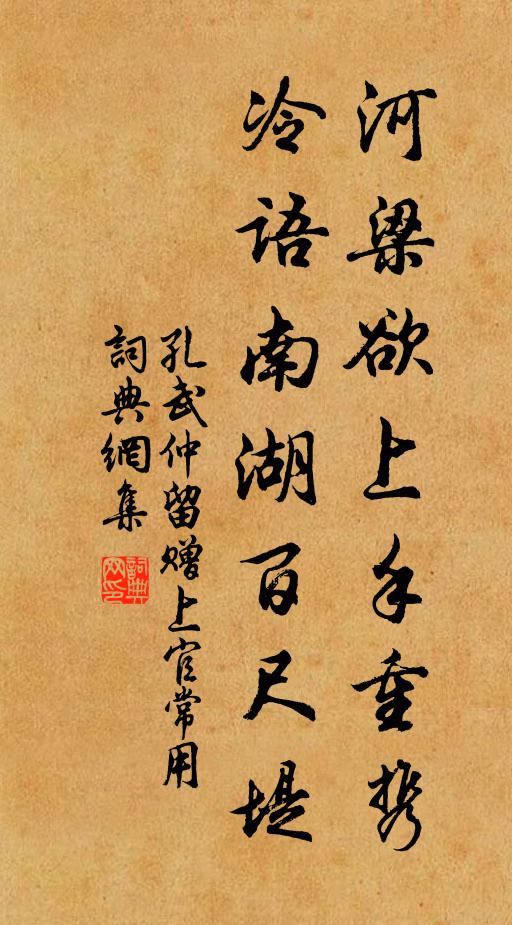 河梁欲上手重携
冷語南湖百尺堤
孔武仲留贈上官常用
詞典網集
詞典網印